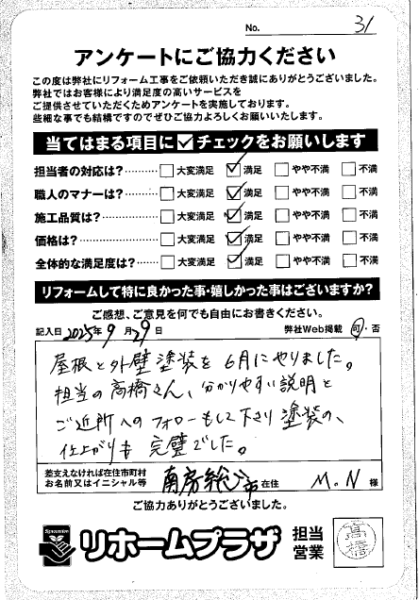 No. 31
アンケートにご協力ください
この度は弊社にリフォーム工事をご依頼いただき誠にありがとうございました。
弊社ではお客様により満足度の高いサービスを
ご提供させていただくためアンケートを実施しております。
些細な事でも結構ですのでぜひご協力よろしくお願いいたします。
当てはまる項目に☑チェックをお願いします
担当者の対応は?………□大変満足 ☑満足 □やや不満 □不満
職人のマナーは?………□大変満足 ☑満足 □やや不満 □不満
施工品質は?……………□大変満足 ☑満足 □やや不満 □不満
価格は?…………………□大変満足 ☑満足 □やや不満 □不満
全体的な満足度は?……□大変満足 ☑満足 □やや不満 □不満
リフォームして特に良かった事・嬉しかった事はございますか?
ご感想、ご意見を何でも自由にお書きください。
記入日 2025年9月29日 弊社Web掲載 可・否
屋根と外壁塗装を6月にやりました。
担当の高橋さん、分かりやすい説明と
ご近所へのフォローもして下さり塗装の、
仕上がりも完璧でした。
差支えなければ在住市町村
お名前又はイニシャル等 南房総市在住 M.N 様
ご協力ありがとうございました。
リホームプラザ
担当
営業
髙橋